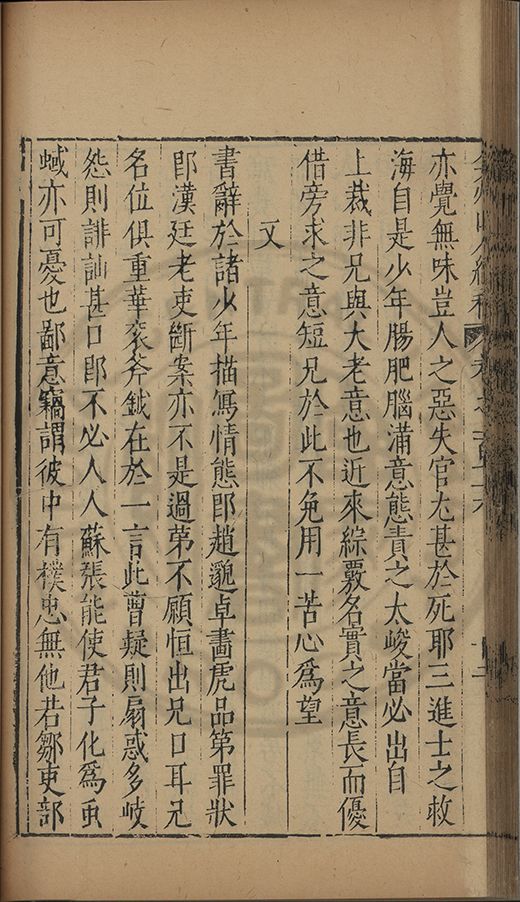 亦覺無味豈人之惡失官尤甚於死耶三進士之救
海自是少年腸肥腦滿意態責之太峻當必出自
上裁非兄與大老意也近來綜覈名實之意長而優
借旁求之意短兄於此不免用一苦心爲望
又
書辭於諸少年描寫情態卽趙邈卓畫虎品第罪狀
卽漢廷老吏斷案亦不是過第不顧恒出兄口耳兄
名位俱重華衮斧鉞在於一言此曹疑則扇惑多岐
怨則誹訕甚口卽不必人人蘇張能使君子化爲䖝
蜮亦可憂也鄙意竊謂彼中有樸忠無他若鄒吏部